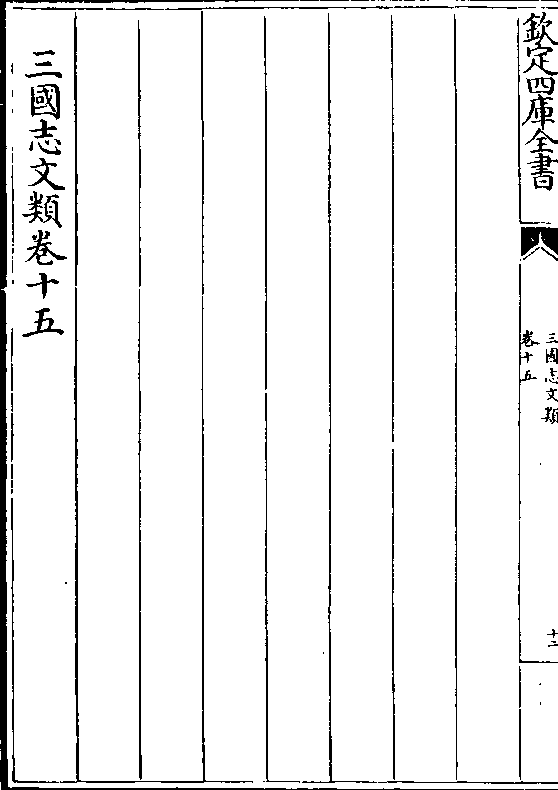 欽定四庫全書
三國志文類
卷十五
十二
三國志文類卷十五